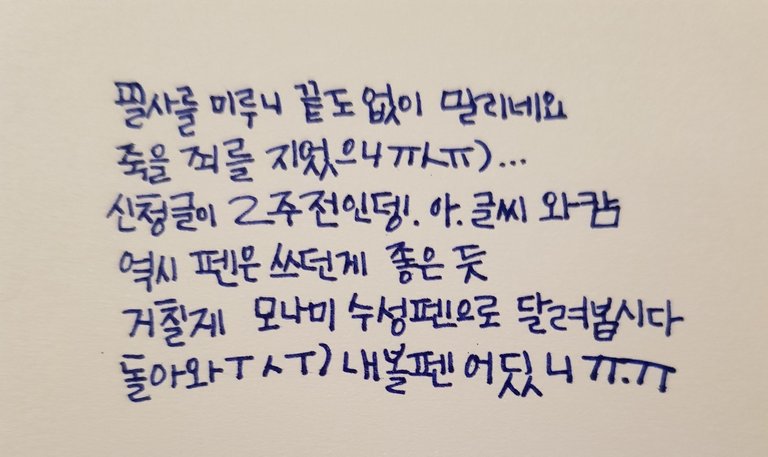 필사를 미루니 끝도 없이 말리네요
죽을 죄를 지었으니 ㅠㅅㅠ)...
신청글이 2주 전인뎅!. 아. 글씨 와캄
역시 펜은 쓰던게 좋은 듯
거칠게 모나미 수성펜으로 달려봅시다
돌아와 ㅜㅅㅜ) 내볼펜 어딨니 ㅠ.ㅠ